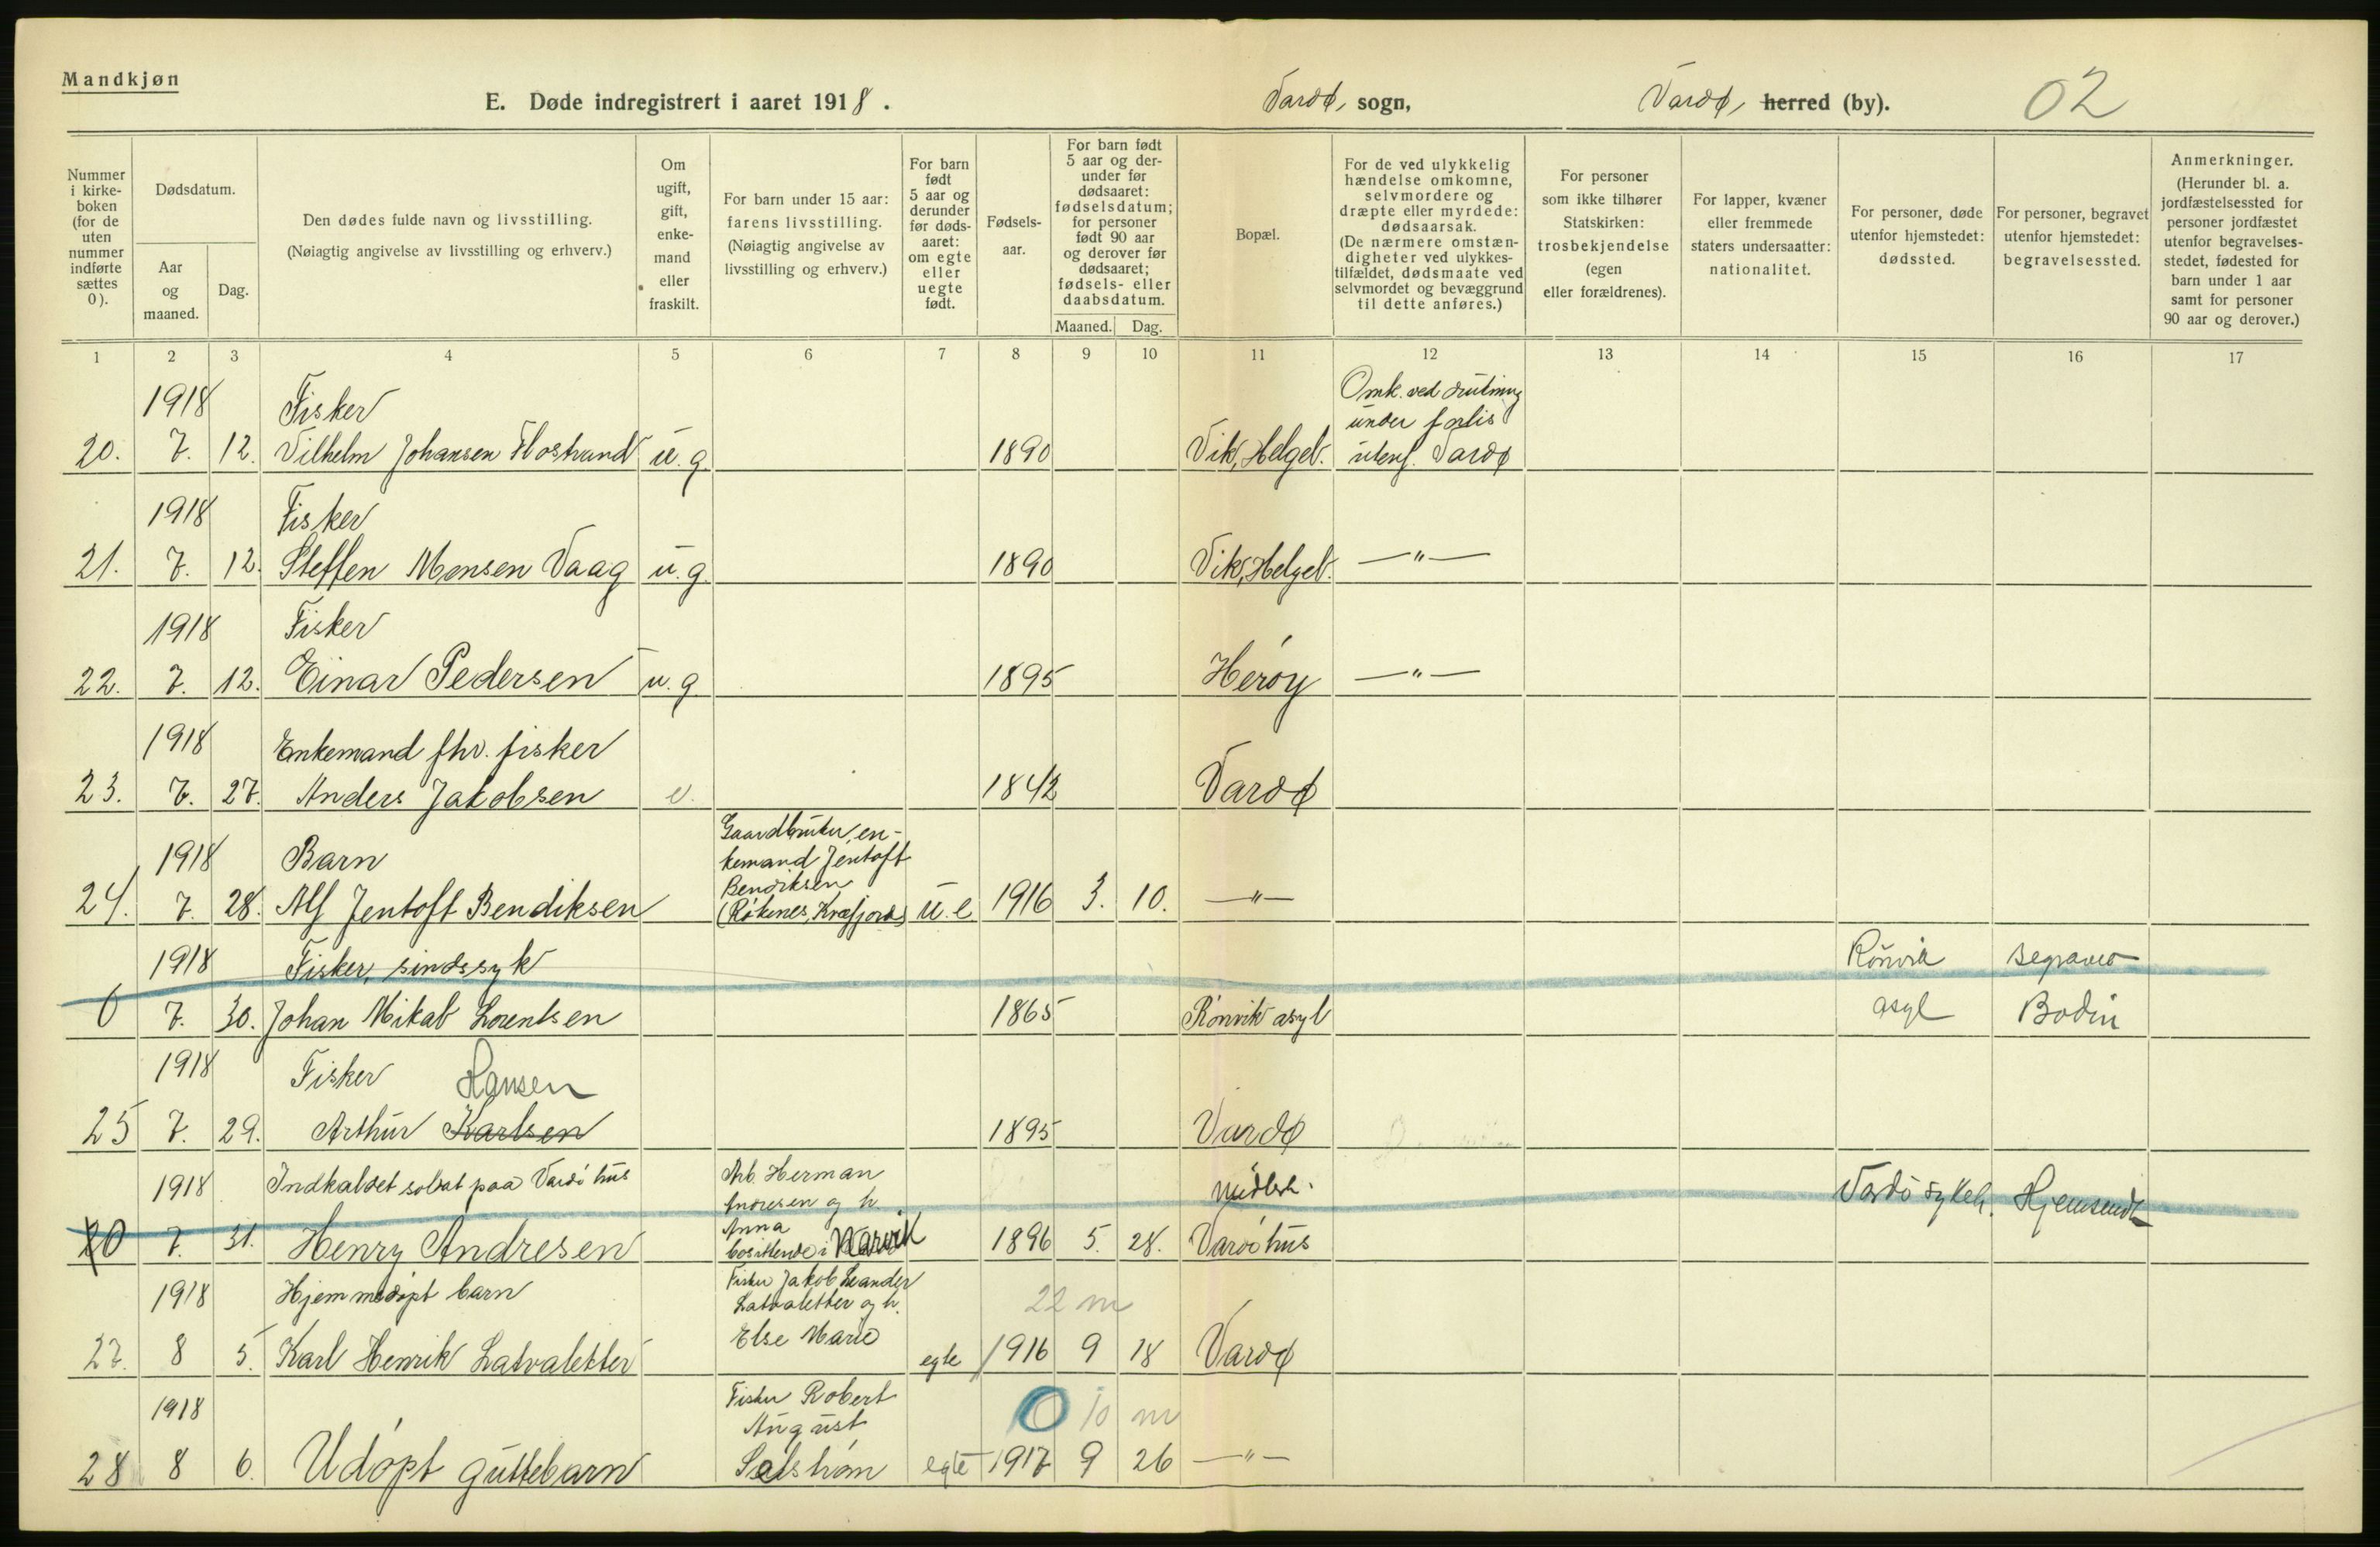 Mandkjøn
E. Døde indregistrert i aaret 1918.
Vardø, sogn,
Vardø, herred (by).
02
Nummer i kirke- boken (for de uten nummer indførte sættes 0).
Dødsdatum.
Aar og maaned.
Dag.
Den dødes fulde navn og livsstilling.
(Nøiagtig angivelse av livsstilling og erhverv.)
Om ugift, gift, enke- mand eller fraskilt.
For barn under 15 aar: farens livsstilling. (Nøiagtig angivelse av livsstilling og erhverv.)
For barn født 5 aar og derunder før døds- aaret: om egte eller uegte født.
Fødsels- aar.
For barn født 5 aar og der- under før dødsaaret: fødselsdatum; for personer født 90 aar og derover før dødsaaret; fødsels- eller daabsdatum.
Maaned. Dag.
Bopæl.
For de ved ulykkelig hændelse omkomne, selvmordere og dræpte eller myrdede: dødsaarsak. (De nærmere omstæn- digheter ved ulykkes- tilfældet, dødsmaate ved selvmordet og bevæggrund til dette anføres.)
For personer som ikke tilhører Statskirken: trosbekjendelse (egen eller forældrenes).
For lapper, kvæner eller fremmede staters undersaatter: nationalitet.
For personer, døde utenfor hjemstedet: dødssted.
For personer, begravet utenfor hjemstedet: begravelsessted.
Anmerkninger. (Herunder bl. a. jordfæstelsessted for personer jordfæstet utenfor begravelses- stedet, fødested for barn under 1 aar samt for personer 90 aar og derover.)
1 2 3 4 5 6 7 8 9 10 11 12 13 14 15 16 17
1918 Fisker Omk. ved
under forlis
20. 7. 12. Vilhelm Johansen Flostrand u. g. 1890 Vik, Helgel. utenf. Vardø
1918 Fisker
21. 7. 12. Steffen Monsen Vaag u. g. 1890 Vik, Helgel. —"—
1918 Fisker
22. 7. 12. Einar Pedersen u. g. 1895 Herøy —"—
1918 Enkemand fhv. fisker
23. 7. 27. Anders Jakobsen e. 1842 Vardø
Gaardbruker, en-
1918 Barn kemand Jentoft
Bendiksen
24. 7. 28. Alf Jentoft Bendiksen (Røkenes, Kvæfjord) u. e 1916 3. 10. —"—
1918 Fisker, sindssyk Rönvik begravet
0 7. 30. Johan Mikal Lorentsen 1865 Rönvik asyl asyl Bodin
1918 Fisker Hansen
25 7. 29. Arthur Karlsen 1895 Vardø
1918 Indkaldet soldat paa Vardöhus Arb. Herman midlert. Vardö sykeh. Hjemsendt
Andresen og h.
Anna
20 7. 31. Henry Andresen bosittende i Narvik 1896 5. 28. Vardöhus
1918 Hjemmedøpt barn Fisker Jakob Leander
Latvaletter og h. 22 m
27. 8 5. Karl Henrik Latvaletter Else Marie egte 1916 9 18 Vardø
1918 Fisker Robert
August 0 10 m
28 8 6. Udöpt guttebarn egte 1917 9 26 —"—